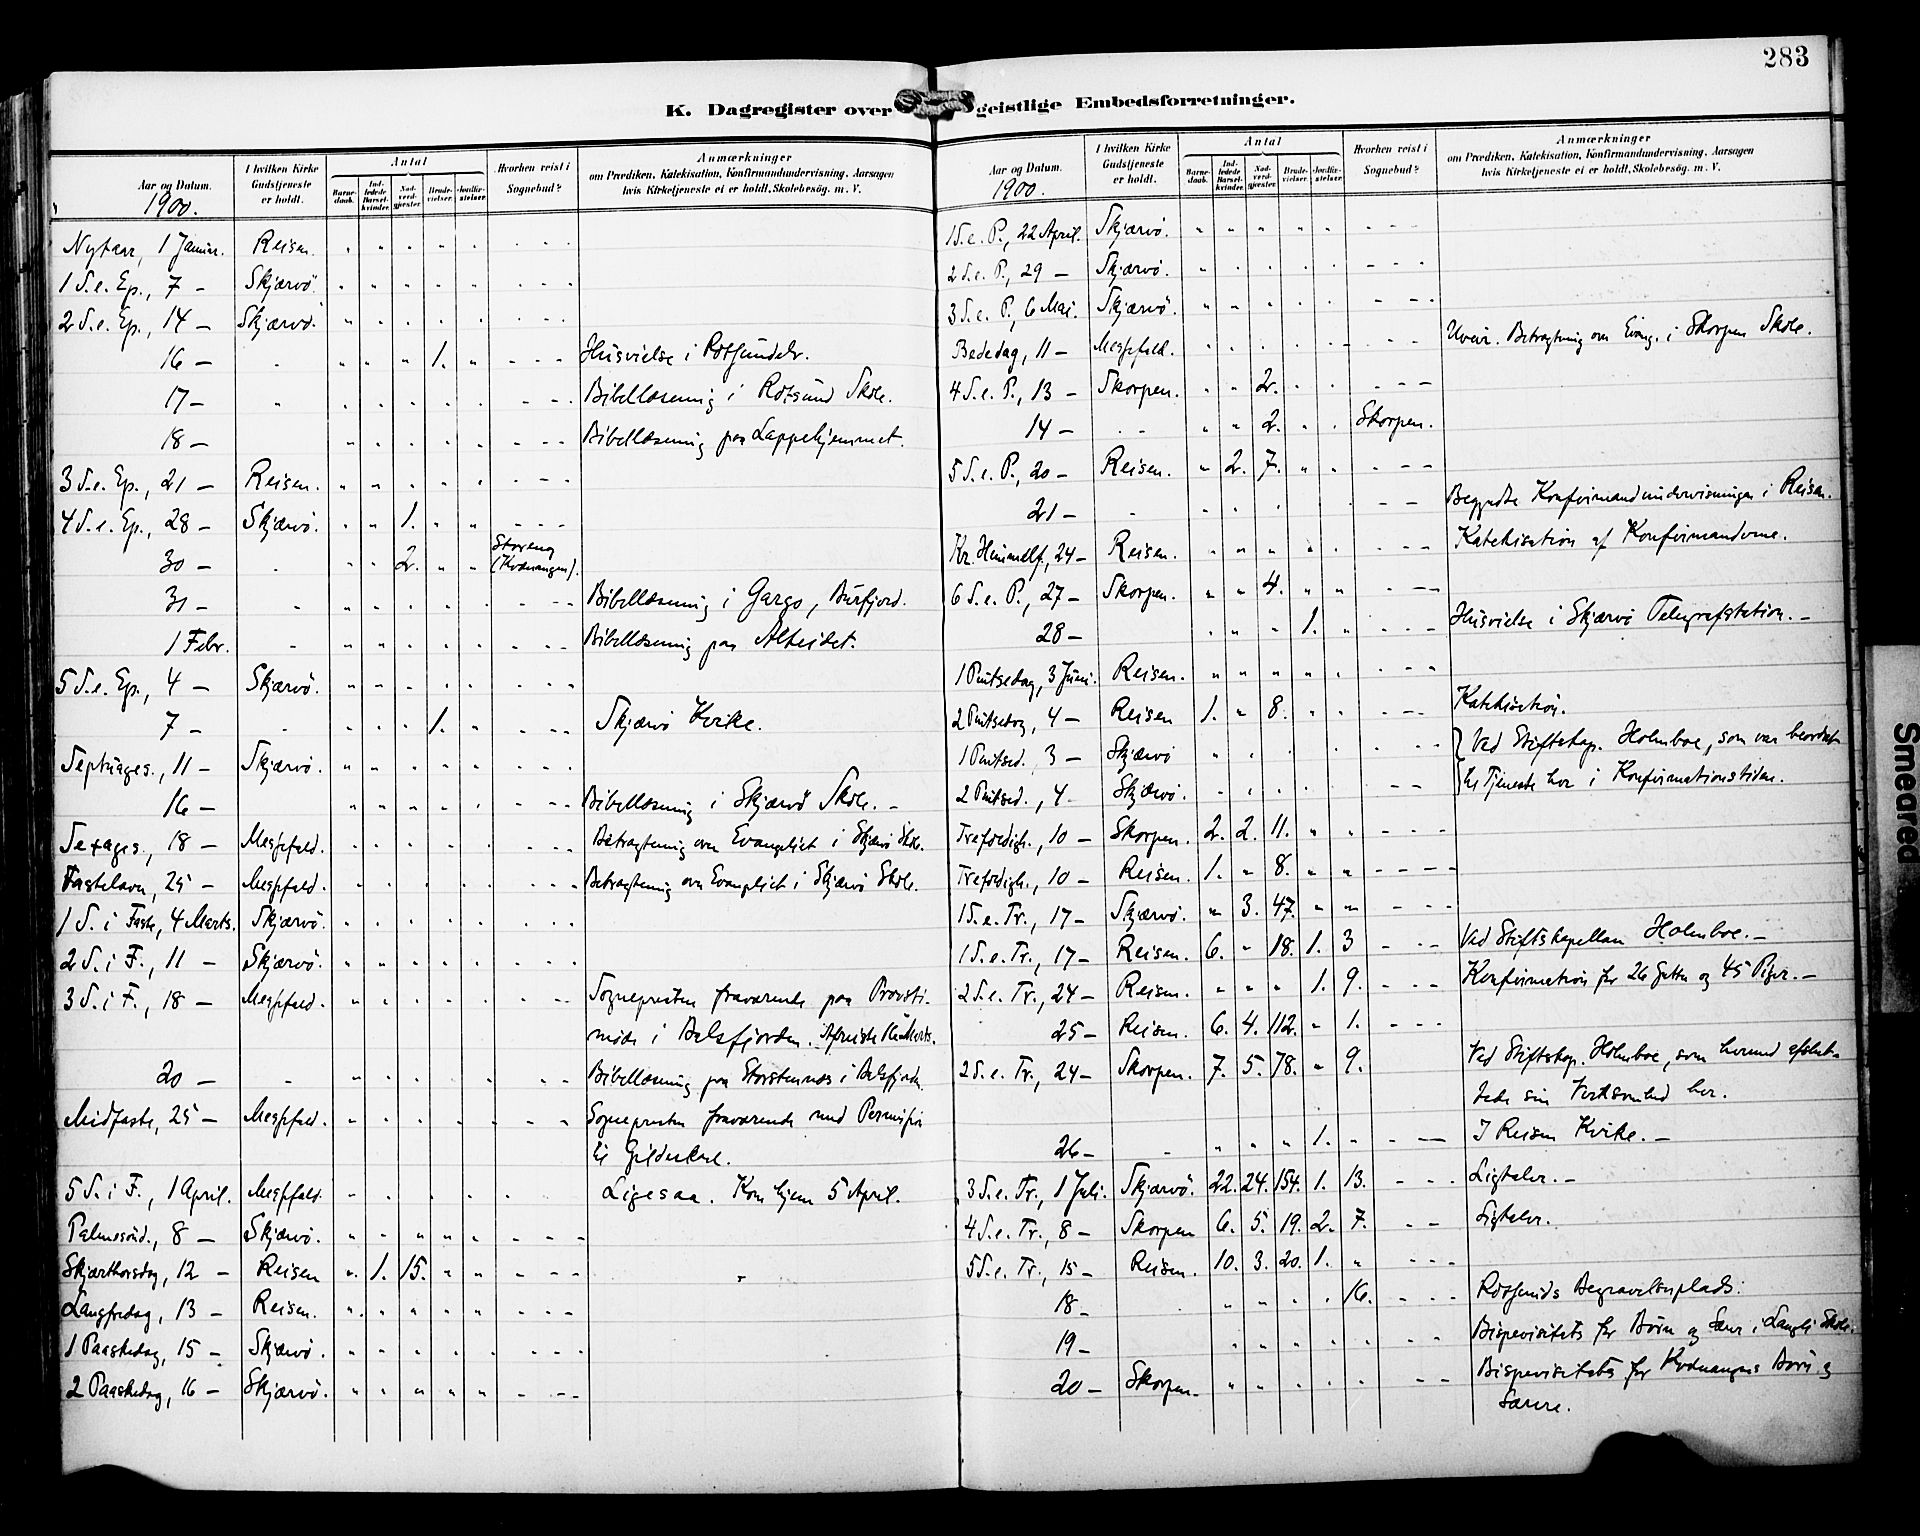 283
K. Dagregister over geistlige Embedsforretninger.
Aar og Datum. 1900.
I hvilken Kirke Gudstjeneste er holdt.
Antal
Barnedaab.
Indledede Barselkvinder.
Nadverdgjester.
Brudevielser.
Jordfæstelser.
Hvorhen reist i Sognebud?
Anmærkninger
om Prædiken, Katekisation, Konfirmandundervisning, Aarsagen
hvis Kirketjeneste ei er holdt, Skolebesøg. m. V.
Nytaar, 1 Januar. Reisen.
1 S. e. Ep., 7 – Skjærvö.
2 S. e. Ep., 14 – Skjærvö.
16 – 1. Husvielse i Rotsundelv.
17 – Bibellæsning i Rotsund Skole.
18 – Bibellæsning paa Lappehjemmet.
3 S. e. Ep., 21 – Reisen.
4 S. e. Ep., 28 – Skjærvö. 1.
30 – 2. Storeng (Kvænangen).
31 – Bibellæsning i Gargo, Burfjord.
1 Febr. Bibellæsning paa Alteidet.
5 S. e. Ep., 4 – Skjærvö.
7 – 1. Skjærvö Kirke.
Septuages., 11 – Skjærvö.
16 – Bibellæsning i Skjærvö Skole. –
Sexages., 18 – Messefald. Betragtning over Evangeliet i Skjærvö Skole.
Fastelavn, 25 – Messefald. Betragtning over Evangeliet i Skjærvö Skole.
1 S. i Faste, 4 Marts. Skjærvö.
2 S. i F., 11 – Skjærvö.
3 S. i F., 18 – Messefald. Sognepresten fraværende paa Provsti-
möde i Balsfjorden. Afreiste Marts.
20 – Bibellæsning paa Storstennes i Balsfjorden.
Midfaste, 25 – Messefald. Sognepresten fraværende med Permission
til Gildeskaal.
5 S. i F., 1 April. Messefald. Ligesaa. Kom hjem 5 April.
Palmesönd., 8 – Skjærvö.
Skjærthorsdag, 12 – Reisen 1. 15.
Langfredag, 13 – Reisen.
1 Paaskedag, 15 – Skjærvö.
2 Paaskedag, 16 – Skjærvö.
Aar og Datum. 1900.
I hvilken Kirke Gudstjeneste er holdt.
Antal
Barnedaab.
Indledede Barselkvinder.
Nadverdgjester.
Brudevielser.
Jordfæstelser.
Hvorhen reist i Sognebud?
Anmærkninger
om Prædiken, Katekisation, Konfirmandundervisning, Aarsagen
hvis Kirketjeneste ei er holdt, Skolebesøg. m. V.
1 S. e. P., 22 April. Skjærvö.
2 S. e. P., 29 – Skjærvö.
3 S. e. P., 6 Mai. Skjærvö.
Bededag, 11 – Messefald. Uveir. Betragtning over Evang. i Skorpen Skole.
4 S. e. P., 13 – Skorpen. 2.
14 – 2. Skorpen.
5 S. e. P., 20 – Reisen. 2. 7.
21 – Begyndte Konfirmandundervisningen i Reisen.
Kr. Himmelf., 24 – Reisen. Katekisation af Konfirmanderne.
6 S. e. P., 27 – Skorpen. 4.
28 – 1. Husvielse i Skjærvö Telegrafstation. –
1 Pintsedag, 3 Juni. Reisen.
2 Pintsedag, 4 – Reisen 1. 8. Katekisation.
1 Pintsed., 3 – Skjærvö Ved Stiftskap. Holmboe, som var beordret
2 Pintsed., 4 – Skjærvö. til Tjeneste her i Konfirmationstiden.
Trefoldigh., 10 – Skorpen. 2. 2. 11.
Trefoldigh., 10 – Reisen. 1. 8.
1 S. e. Tr., 17 – Skjærvö. 3. 47.
1 S. e. Tr., 17 – Reisen. 6. 18. 1. 3 Ved Stiftskapellan Holmboe. –
2 S. e. Tr., 24 – Reisen. 1. 9. Konfirmation for 26 Gutter og 45 Piger. –
25 – Reisen. 6. 4. 112. 1.
2 S. e. Tr., 24 – Skorpen. 7. 5. 78. 9. Ved Stiftskap. Holmboe, som hermed afslut-
tede sin Virksomhed her.
26 – 1. I Reisen Kirke. –
3 S. e. Tr., 1 Juli. Skjærvö. 22. 24. 154. 1. 13. Ligtaler. –
4 S. e. Tr., 8 – Skorpen 6. 5. 19. 2. 7. Ligtaler.
5 S. e. Tr., 15 – Reisen. 10. 3. 20. 1.
18 – 16. Rotsunds Begravelsesplads.
19 – Bispevisitats for Börn og Lærer i Langli Skole.
20 – Skorpen. Bispevisitats for Kvænangens Börn og
Lærere.
Smeared